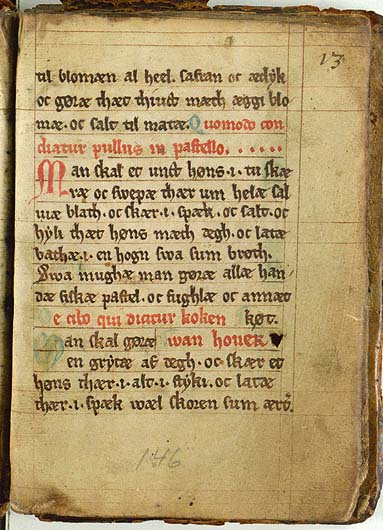 13
til blomæn al heel. safran oc ædyk
oc gøræ thæt thiust mæth æggi blo
mæ. oc salt til matæ. Quomodo con
diatur pullus in pastello. . . . . .
Man skal et unst høns. i. tu skæ
ræ oc swepæ thær um helæ sal
uiæ blath. oc skær. i. spæk. oc salt. oc
hyli thæt høns mæth degh. oc latæ
bathæ. i. en hogn swa sum brøth.
Swa mughæ man gøræ allæ han
dæ fiskæ pastel. oc fughlæ oc annæt
e cibo qui dicitur koken køt.
Man skal gøræ wan honer
en grytæ af degh. oc skær et
høns thær. i. alt. i. styki. oc latæ
thær. i. spæk wæl skoren sum ært
146